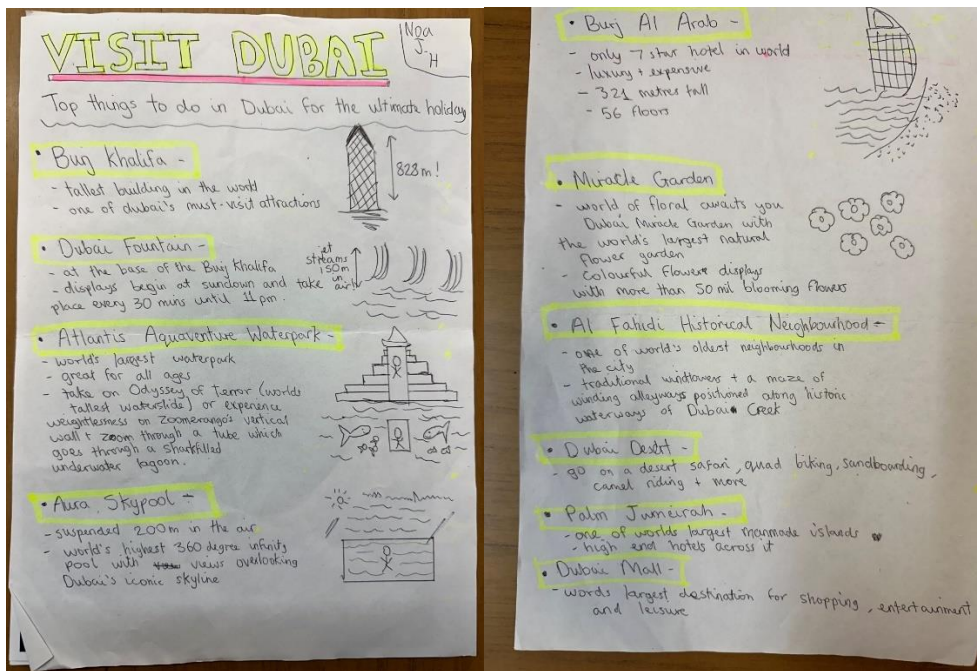 VISIT DUBAI
Noa
J.
H
Top things to do in Dubai for the ultimate holiday
• Burj Khalifa -
- tallest building in the world
- one of dubai's must-visit attractions
828m!
• Dubai Fountain -
- at the base of the Burj Khalifa
- displays begin at sundown and take
place every 30 mins until 11pm.
jet
streams
150m
in
air!
• Atlantis Aquaventure Waterpark -
- world's largest waterpark
- great for all ages
- take on Odyssey of Terror (worlds
tallest waterslide) or experience
weightlessness on zoomerango's vertical
wall + zoom through a tube which
goes through a sharkfilled
underwater lagoon.
• Aura Skypool -
- suspended 200m in the air
- world's highest 360 degree infinity
pool with views overlooking
Dubai's iconic skyline
• Burj Al Arab -
- only 7 star hotel in world
- luxury + expensive
- 321 metres tall
- 56 floors
• Miracle Garden
- world of floral awaits you
Dubai Miracle Garden with
the world's largest natural
flower garden
- colourful flower displays
with more than 50 mil blooming flowers
• Al Fahidi Historical Neighbourhood -
- one of world's oldest neighbourhoods in
the city
- traditional windtowers + a maze of
winding alleyways positioned along historic
waterways of Dubai Creek
• Dubai Desert -
- go on a desert safari, quad biking, sandboarding,
camel riding + more
• Palm Jumeirah -
- one of worlds largest manmade islands
- high end hotels across it
• Dubai Mall -
- words largest destination for shopping, entertainment
and leisure